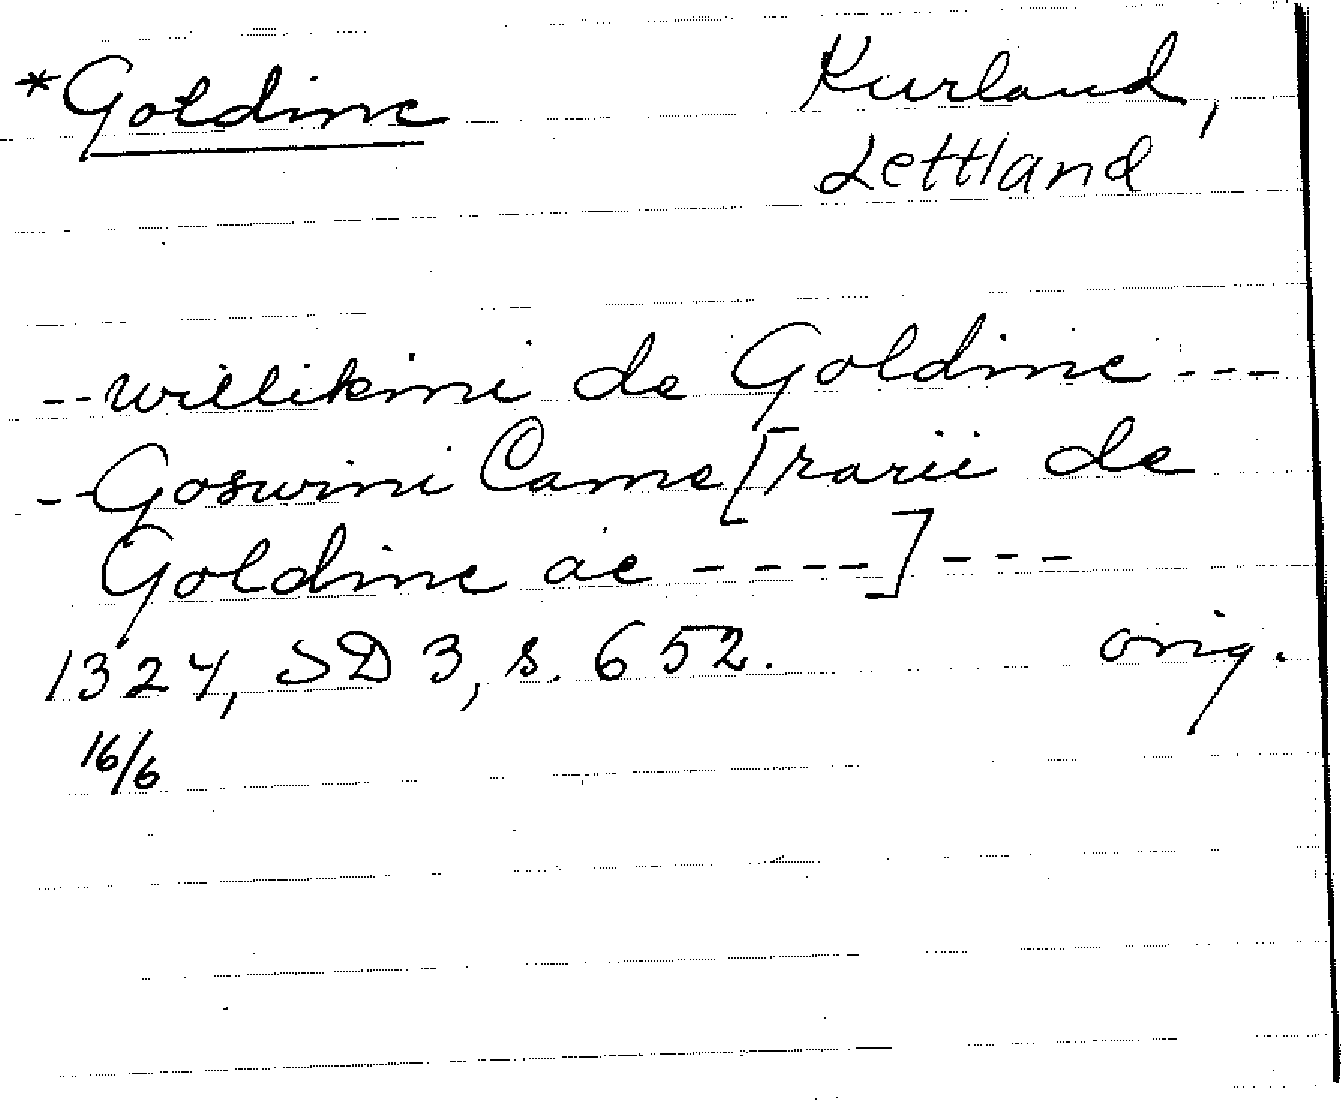 *Goldinc Kurland,
Lettland
--willikini de Goldinc ---
--Goswini Came[rarii de
Goldinc ac ----]---
1324, SD 3, s. 652. orig.
16/6